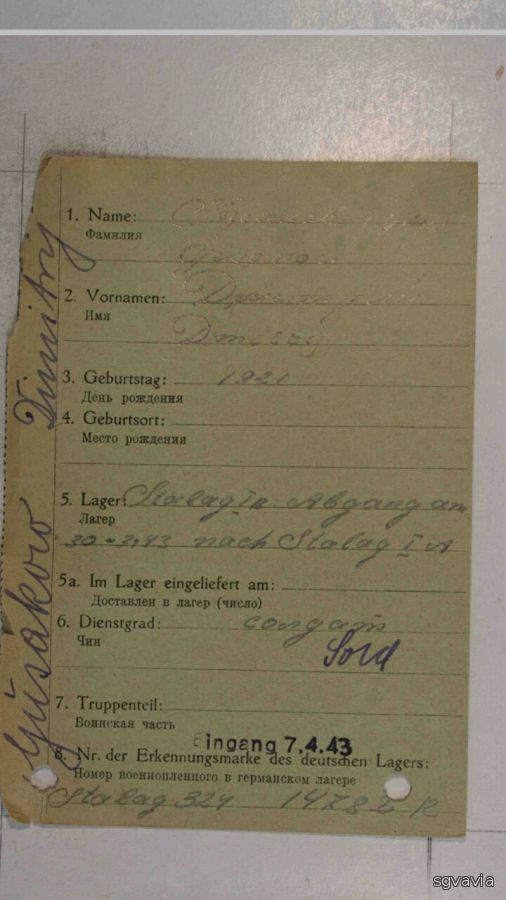 Gusakow Dimitrij
1. Name:
Фамилия
2. Vornamen:
Имя
Dmitrij
3. Geburtstag: 1921
День рождения
4. Geburtsort:
Место рождения
5. Lager: Stalag I B Abgang am
Лагерь
30.3.43 nach Stalag I A
5a. Im Lager eingeliefert am:
Доставлен в лагерь (число)
6. Dienstgrad: солдат
Чин
Sold
7. Truppenteil:
Воинская часть
Eingang 7.4.43
8. Nr. der Erkennungsmarke des deutschen Lagers:
Номер военнопленного в германском лагере
Stalag 324
sgvavia